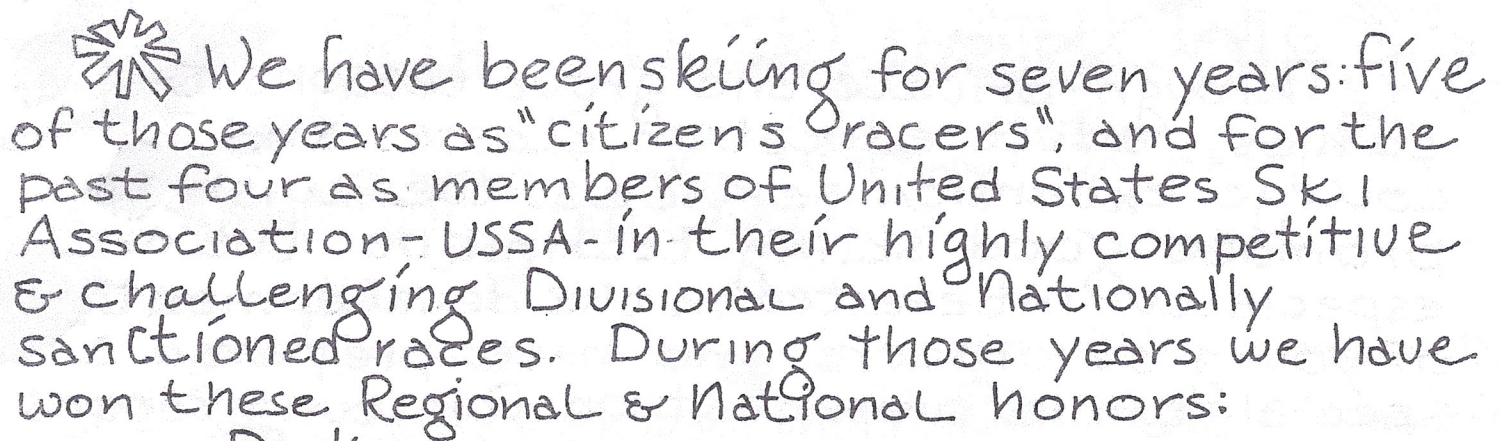 We have been skiing for seven years: five
of those years as "citizens racers", and for the
past four as members of United States Ski
Association - USSA - in their highly competitive
& challenging Divisional and Nationally
sanctioned races. During those years we have
won these Regional & National honors: